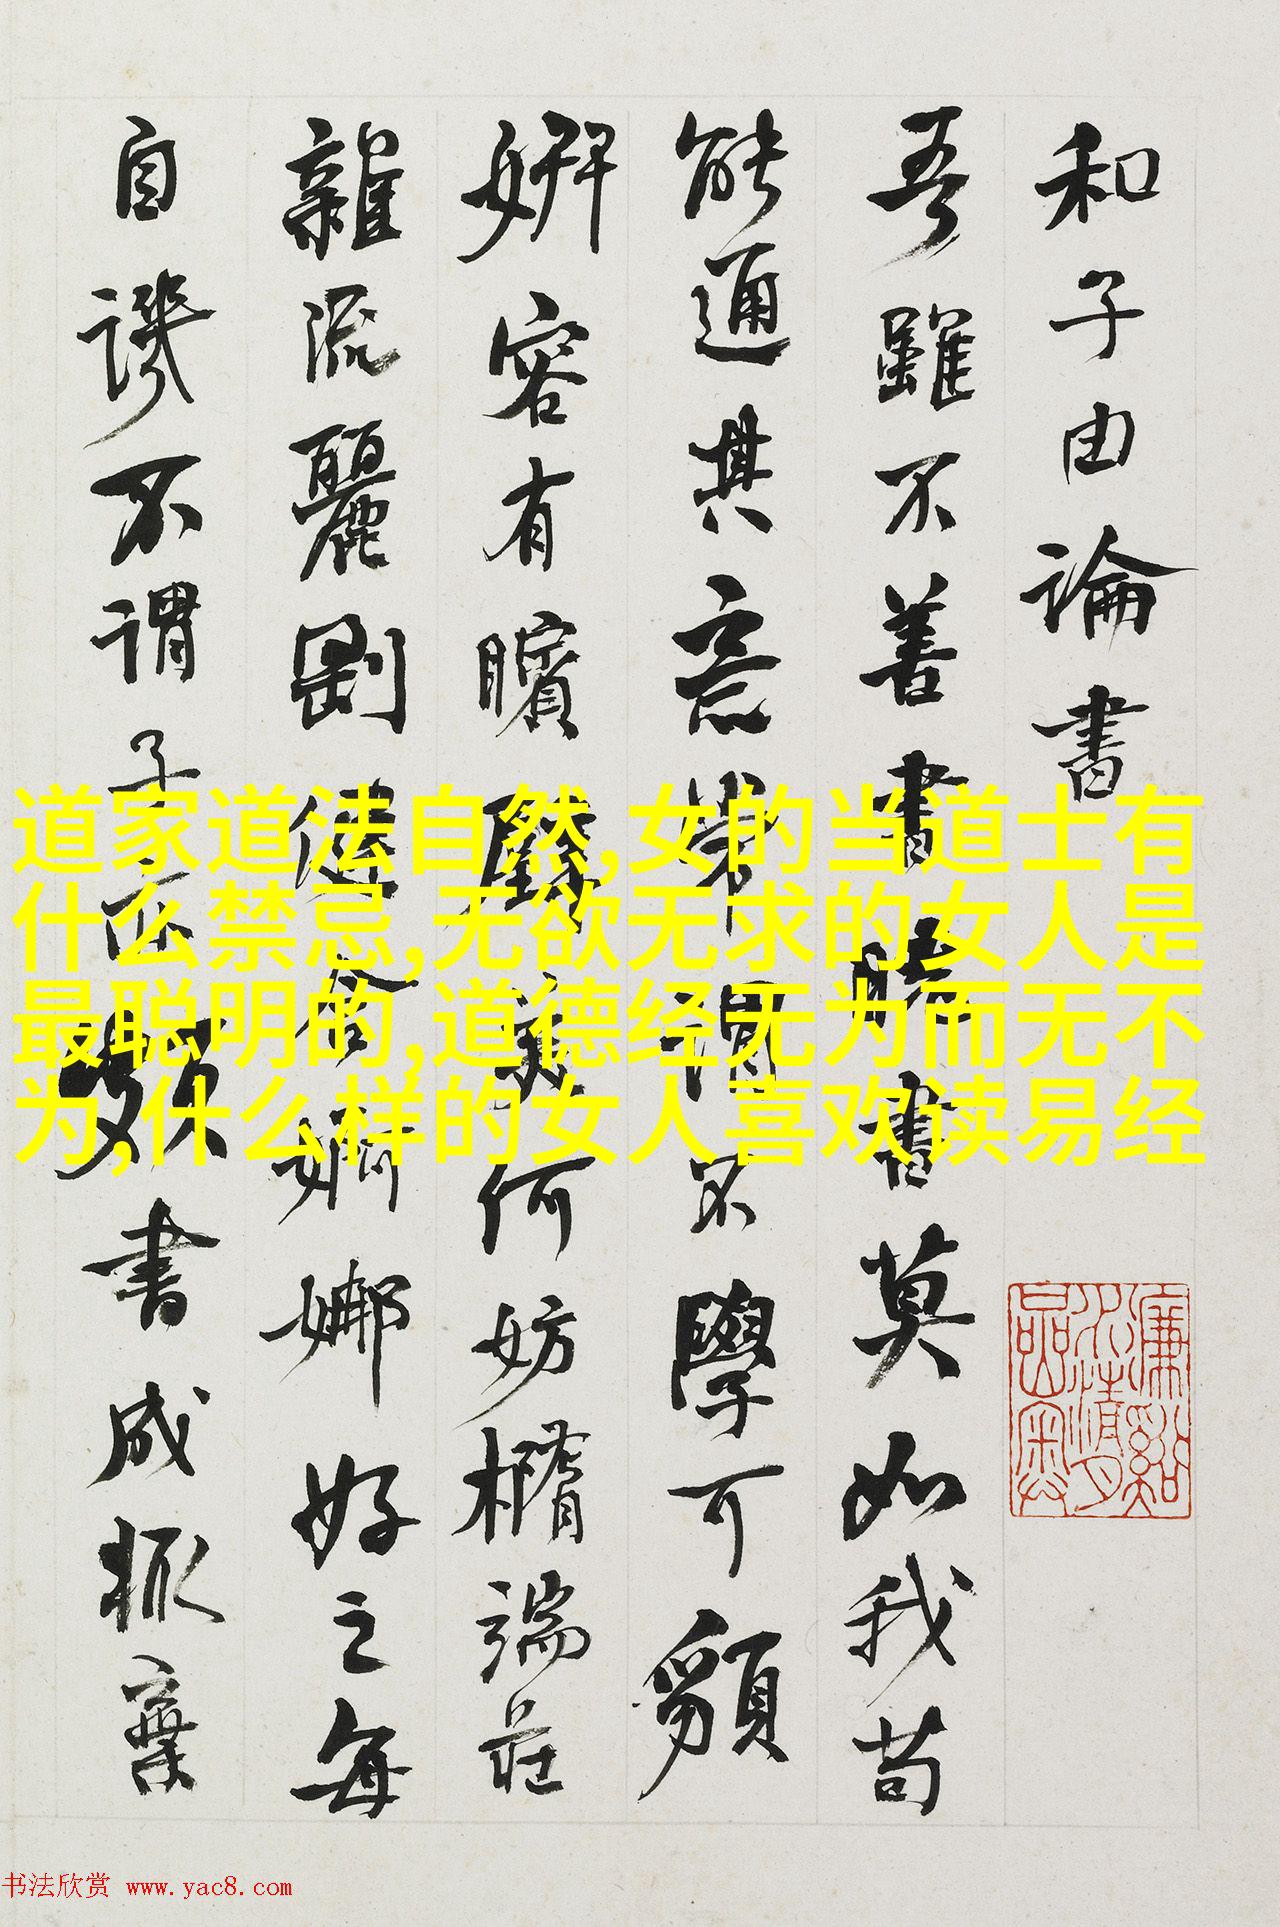 和子由論書
吾雖不善書曉書莫如我苟
能通其意常謂不學可䫉
妍容有矉璧美何妨橢端莊
雜流麗剛健含婀娜好之每
自譏不謂子亦頗書成輒棄
道家道法自然,女的当道士有
什么禁忌,无欲无求的女人是
最聪明的,道德经无为而无不
为,什么样的女人喜欢读易经
书法欣赏 www.yac8.com